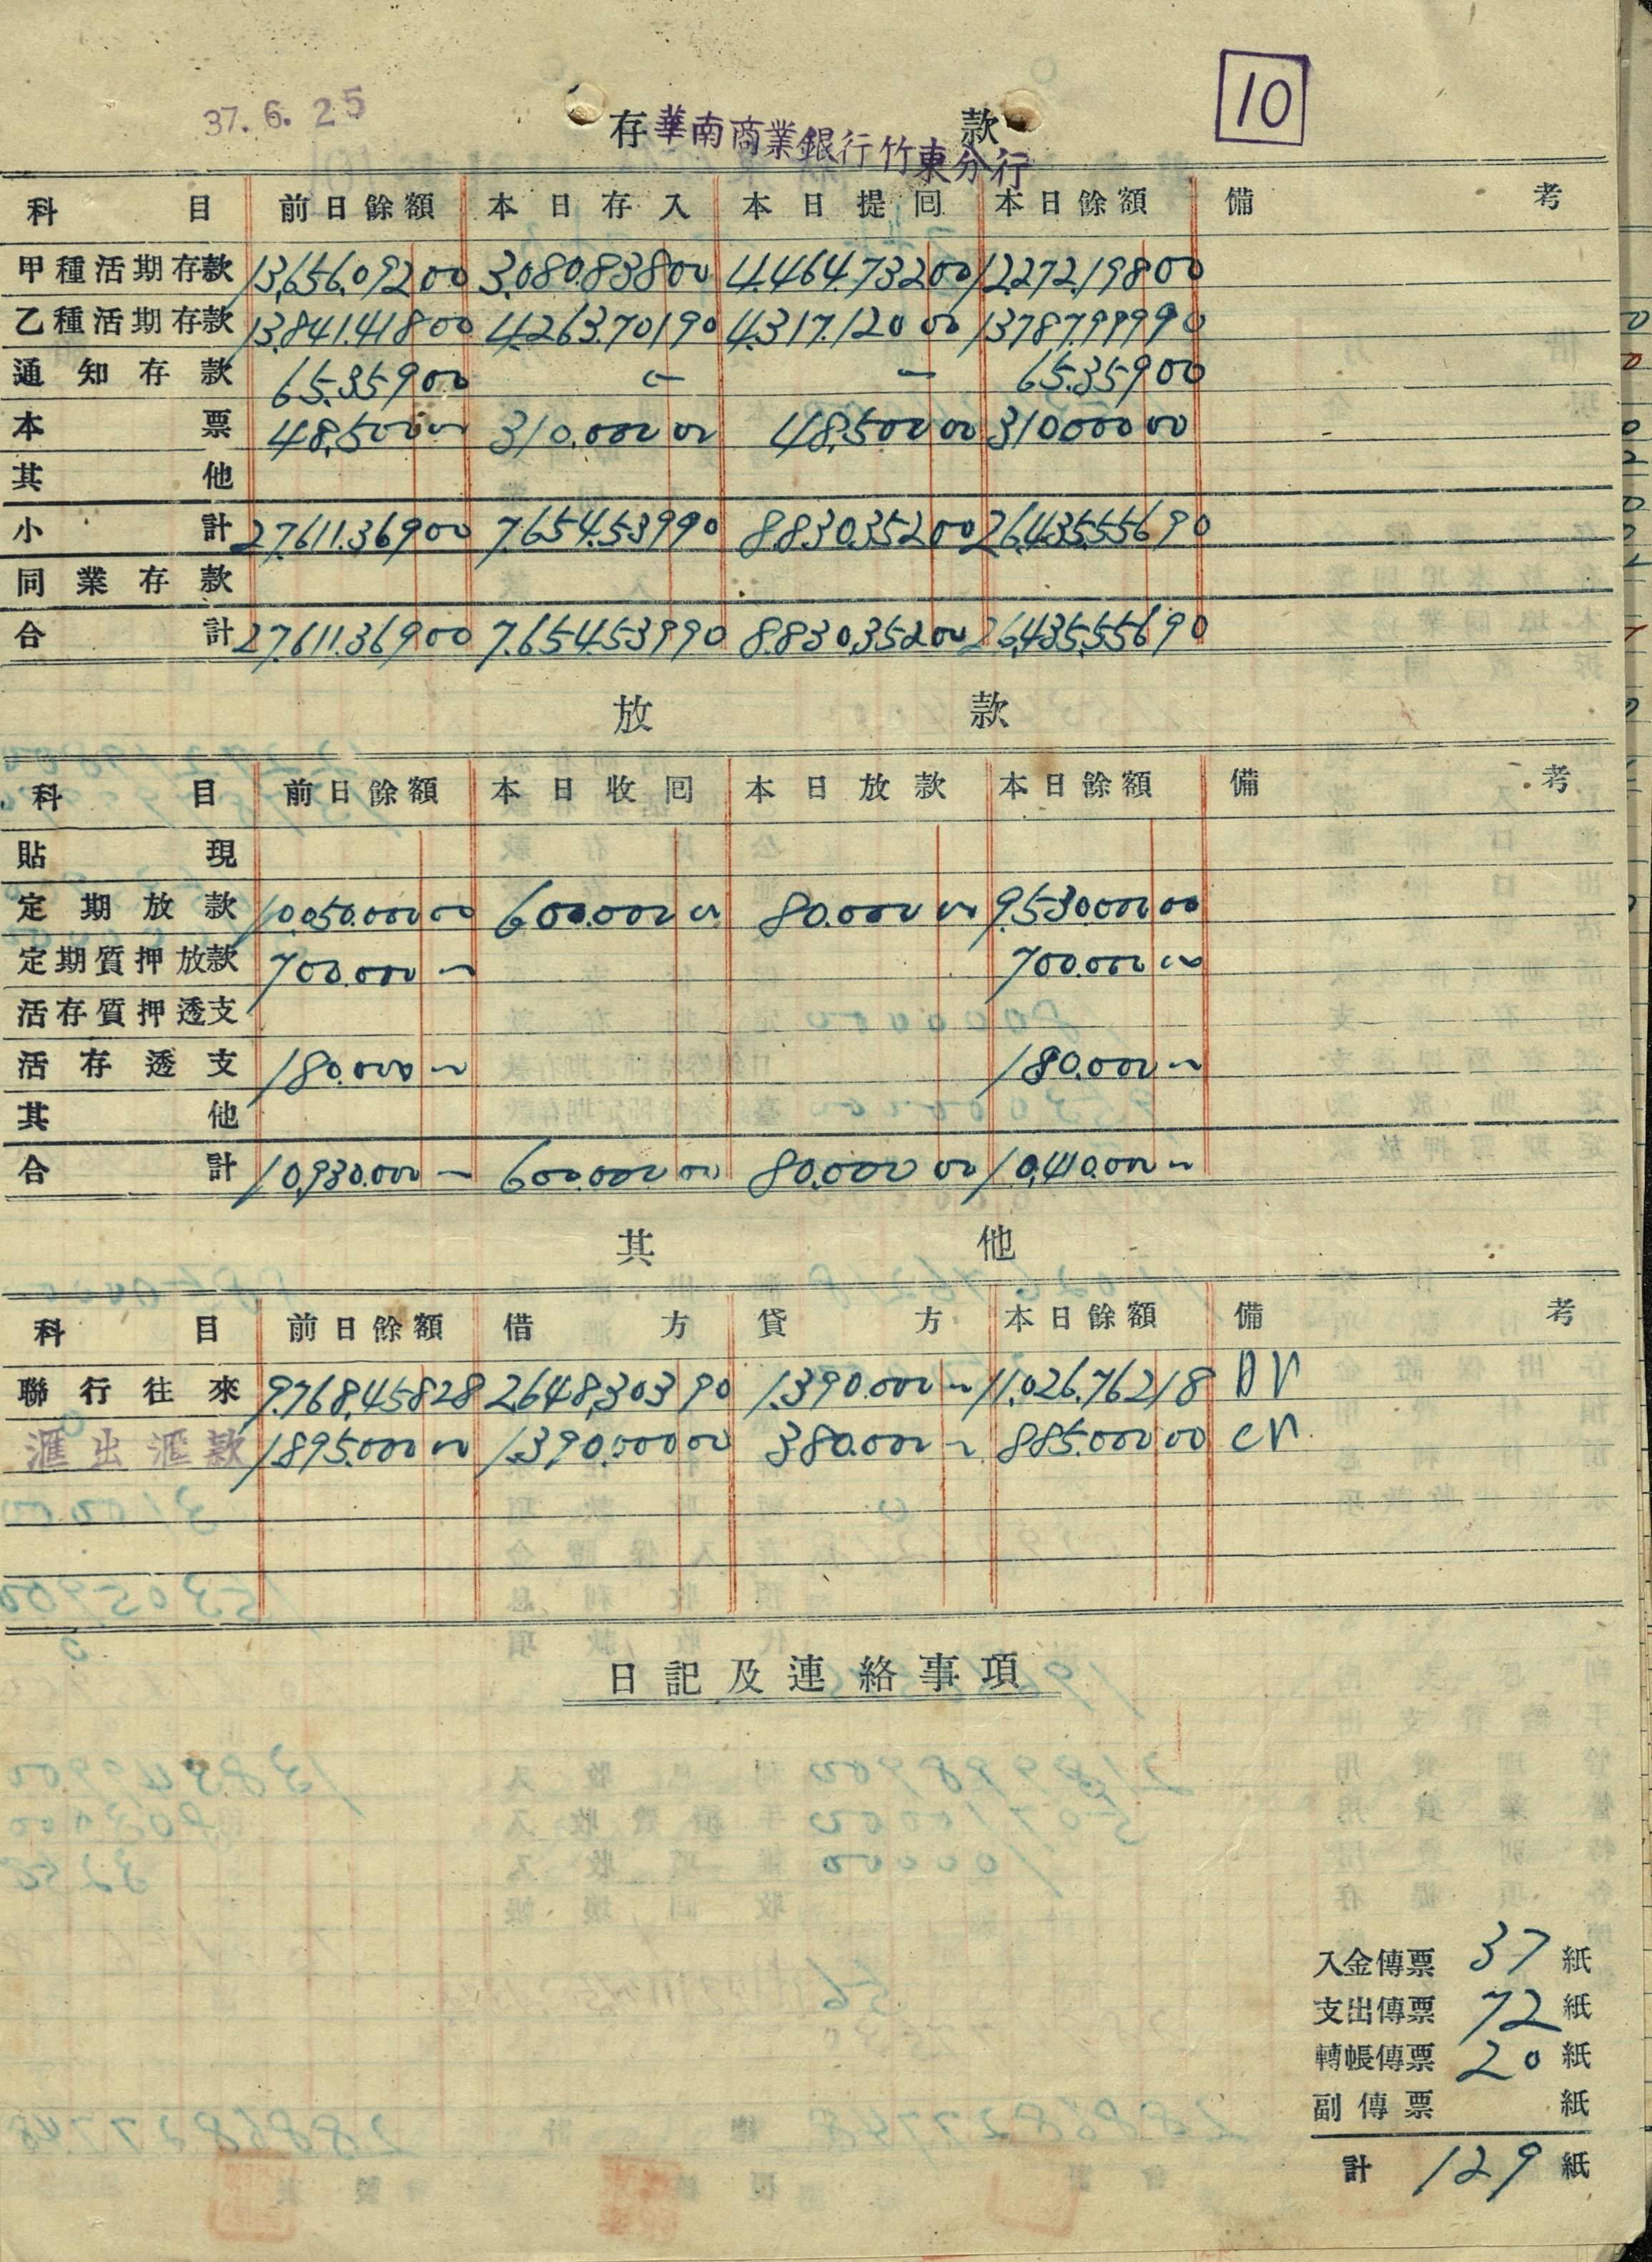 10
37. 6. 25
存 款
華南商業銀行竹東分行
科目 前日餘額 本日存入 本日提回 本日餘額 備考
甲種活期存款 13,656,092 00 3,080,838 00 4,464,732 00 12,272,198 00
乙種活期存款 13,841,418 00 4,263,701 90 4,317,120 00 13,787,999 90
通知存款 65,359 00 — — 65,359 00
本票 48,500 00 310,000 00 48,500 00 310,000 00
其他
小計 27,611,369 00 7,654,539 90 8,830,352 00 26,435,556 90
同業存款
合計 27,611,369 00 7,654,539 90 8,830,352 00 26,435,556 90
放 款
科目 前日餘額 本日收回 本日放款 本日餘額 備考
貼現
定期放款 10,050,000 00 600,000 00 80,000 00 9,530,000 00
定期質押放款 700,000 — 700,000 00
活存質押透支
活存透支 180,000 — 180,000 —
其他
合計 10,930,000 — 600,000 00 80,000 00 10,410,000 —
其 他
科目 前日餘額 借方 貸方 本日餘額 備考
聯行往來 9,768,458 28 2,648,303 90 1,390,000 — 11,026,762 18 Dr
滙出滙款 1,895,000 00 1,390,000 00 380,000 — 885,000 00 Cr.
日記及連絡事項
入金傳票 37 紙
支出傳票 72 紙
轉帳傳票 20 紙
副傳票 紙
計 129 紙